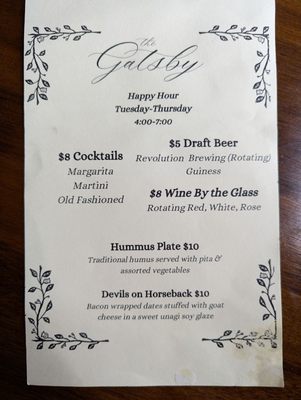 the
Gatsby
Happy Hour
Tuesday-Thursday
4:00-7:00
$8 Cocktails
Margarita
Martini
Old Fashioned
$5 Draft Beer
Revolution Brewing (Rotating)
Guiness
$8 Wine By the Glass
Rotating Red, White, Rose
Hummus Plate $10
Traditional humus served with pita &
assorted vegetables
Devils on Horseback $10
Bacon wrapped dates stuffed with goat
cheese in a sweet unagi soy glaze